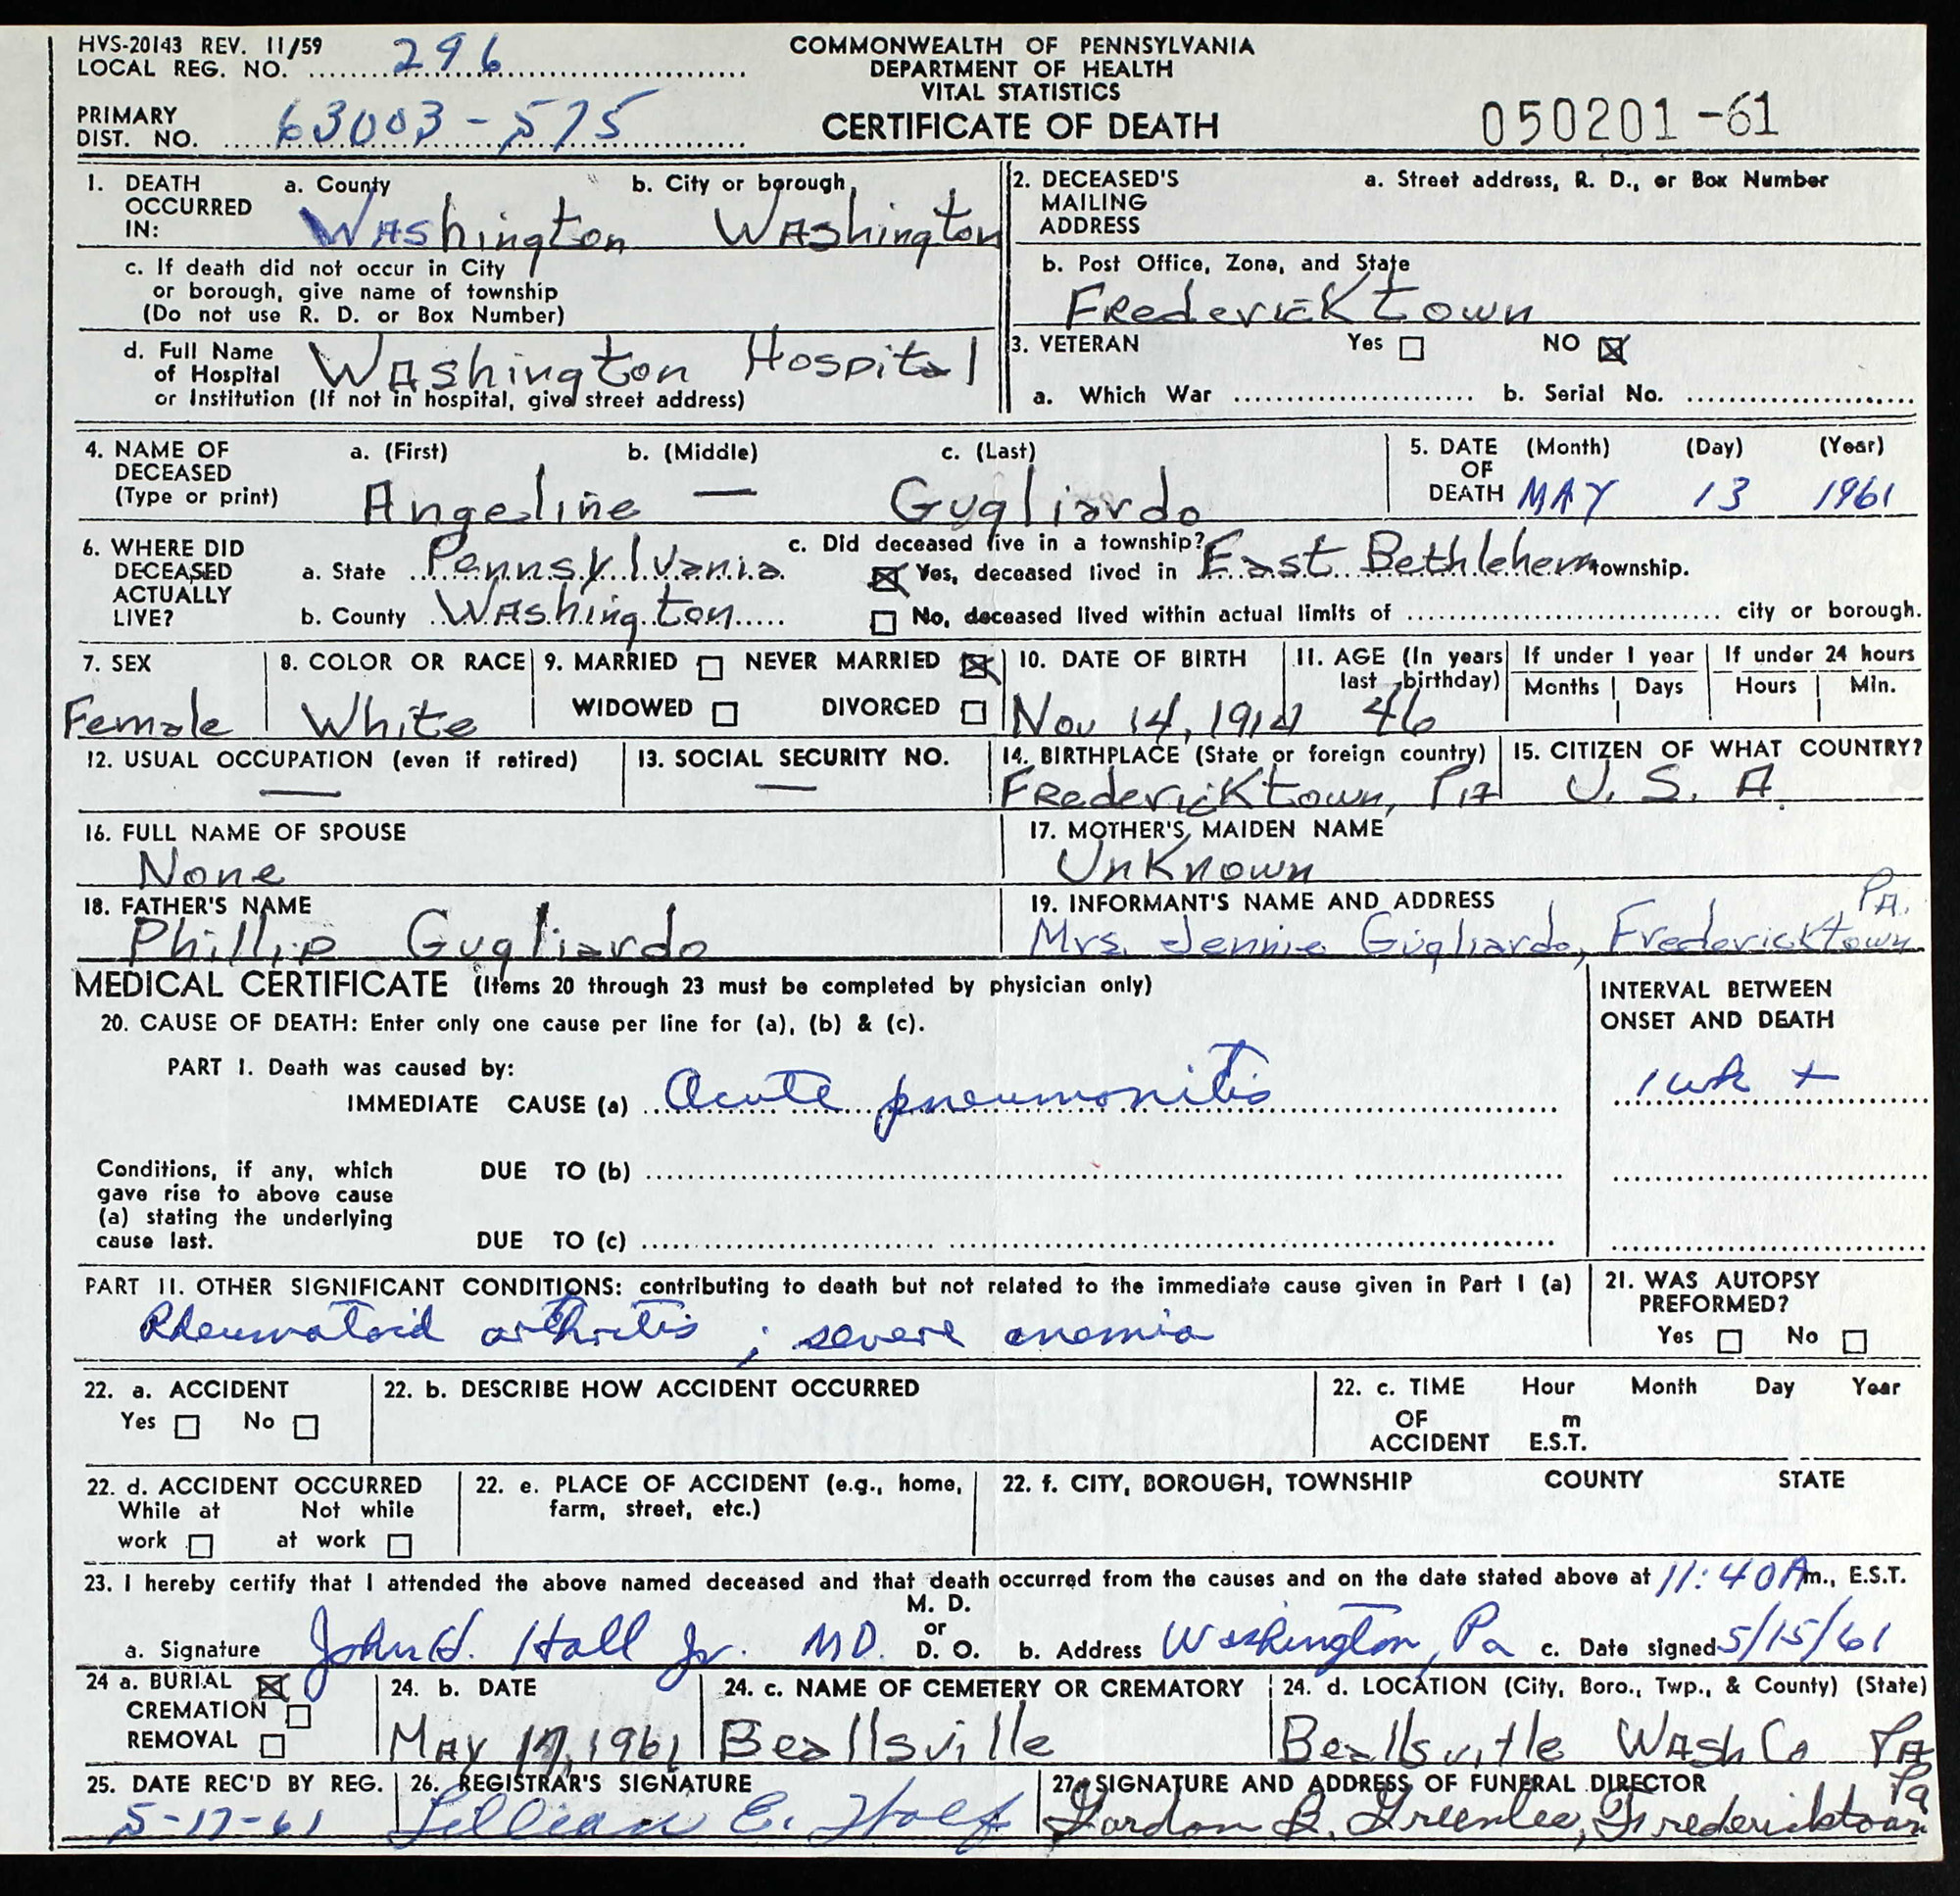 HVS-20143 REV. 11/59
LOCAL REG. NO. 296
PRIMARY
DIST. NO. 63003-575
COMMONWEALTH OF PENNSYLVANIA
DEPARTMENT OF HEALTH
VITAL STATISTICS
CERTIFICATE OF DEATH
050201-61
1. DEATH OCCURRED IN: a. County b. City or borough
Washington Washington
c. If death did not occur in City
or borough, give name of township
(Do not use R. D. or Box Number)
d. Full Name
of Hospital Washington Hospital
or Institution (If not in hospital, give street address)
2. DECEASED'S MAILING ADDRESS a. Street address, R. D., or Box Number
b. Post Office, Zone, and State
Fredericktown
3. VETERAN Yes ☐ NO ☒
a. Which War b. Serial No.
4. NAME OF DECEASED (Type or print) a. (First) b. (Middle) c. (Last)
Angeline — Gugliardo
5. DATE OF DEATH (Month) (Day) (Year)
MAY 13 1961
6. WHERE DID DECEASED ACTUALLY LIVE?
a. State Pennsylvania
b. County Washington
c. Did deceased live in a township?
☒ Yes, deceased lived in East Bethlehem township.
☐ No, deceased lived within actual limits of city or borough.
7. SEX
Female
8. COLOR OR RACE
White
9. MARRIED ☐ NEVER MARRIED ☒
WIDOWED ☐ DIVORCED ☐
10. DATE OF BIRTH
Nov 14, 1914
11. AGE (In years last birthday)
46
If under 1 year
Months Days
If under 24 hours
Hours Min.
12. USUAL OCCUPATION (even if retired)
—
13. SOCIAL SECURITY NO.
—
14. BIRTHPLACE (State or foreign country)
Fredericktown, PA
15. CITIZEN OF WHAT COUNTRY?
U. S. A.
16. FULL NAME OF SPOUSE
None
17. MOTHER'S MAIDEN NAME
Unknown
18. FATHER'S NAME
Phillip Gugliardo
19. INFORMANT'S NAME AND ADDRESS
Mrs. Jennie Gugliardo, Fredericktown PA.
MEDICAL CERTIFICATE (Items 20 through 23 must be completed by physician only)
INTERVAL BETWEEN
ONSET AND DEATH
20. CAUSE OF DEATH: Enter only one cause per line for (a), (b) & (c).
PART I. Death was caused by:
IMMEDIATE CAUSE (a) Acute pneumonitis 1 wk +
Conditions, if any, which
gave rise to above cause
(a) stating the underlying
cause last.
DUE TO (b)
DUE TO (c)
PART II. OTHER SIGNIFICANT CONDITIONS: contributing to death but not related to the immediate cause given in Part I (a)
Rheumatoid arthritis ; severe anemia
21. WAS AUTOPSY
PREFORMED?
Yes ☐ No ☐
22. a. ACCIDENT
Yes ☐ No ☐
22. b. DESCRIBE HOW ACCIDENT OCCURRED
22. c. TIME OF ACCIDENT Hour Month Day Year
m
E.S.T.
22. d. ACCIDENT OCCURRED
While at work ☐ Not while at work ☐
22. e. PLACE OF ACCIDENT (e.g., home,
farm, street, etc.)
22. f. CITY, BOROUGH, TOWNSHIP COUNTY STATE
23. I hereby certify that I attended the above named deceased and that death occurred from the causes and on the date stated above at 11:40 A m., E.S.T.
a. Signature John H. Hall Jr. MD. M. D. or D. O. b. Address Washington, Pa c. Date signed 5/15/61
24 a. BURIAL ☒
CREMATION ☐
REMOVAL ☐
24. b. DATE
May 17, 1961
24. c. NAME OF CEMETERY OR CREMATORY
Beallsville
24. d. LOCATION (City, Boro., Twp., & County) (State)
Beallsville Wash Co PA
25. DATE REC'D BY REG.
5-17-61
26. REGISTRAR'S SIGNATURE
Lillian E.
27. SIGNATURE AND ADDRESS OF FUNERAL DIRECTOR
Gordon B. Greenlee, Fredericktown Pa